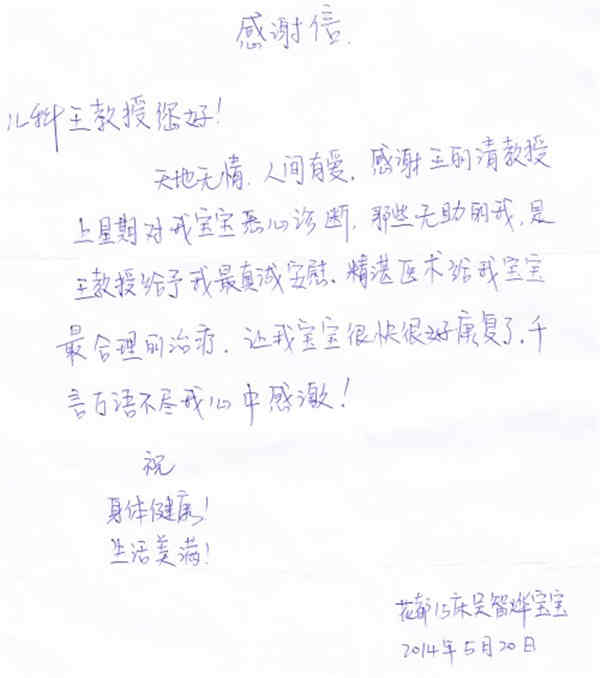 感谢信.
儿科王教授您好!
天地无情.人间有爱.感谢王的清教授
上星期对我宝宝悉心诊断,那些无助的我,是
王教授给予我最真诚安慰.精湛医术给我宝宝
最合理的治疗.让我宝宝很快很好康复了.千
言万语不尽我心中感激!
祝
身体健康!
生活美满!
花都15床吴智烨宝宝
2014年5月20日